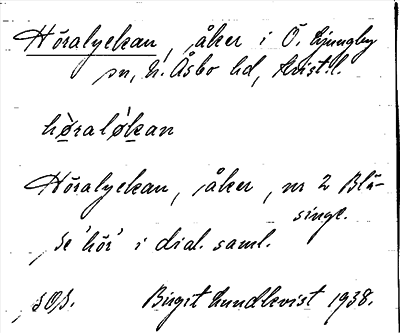 Höralyckan, åker i Ö. Ljungby
sn, N. Åsbo hd, Krist. l.
hø̱ralǿ̱kan
Höralyckan, åker, nr 2 Blä-
singe.
se 'hör' i dial. saml.
SOS. Birgit Lundkvist 1938.